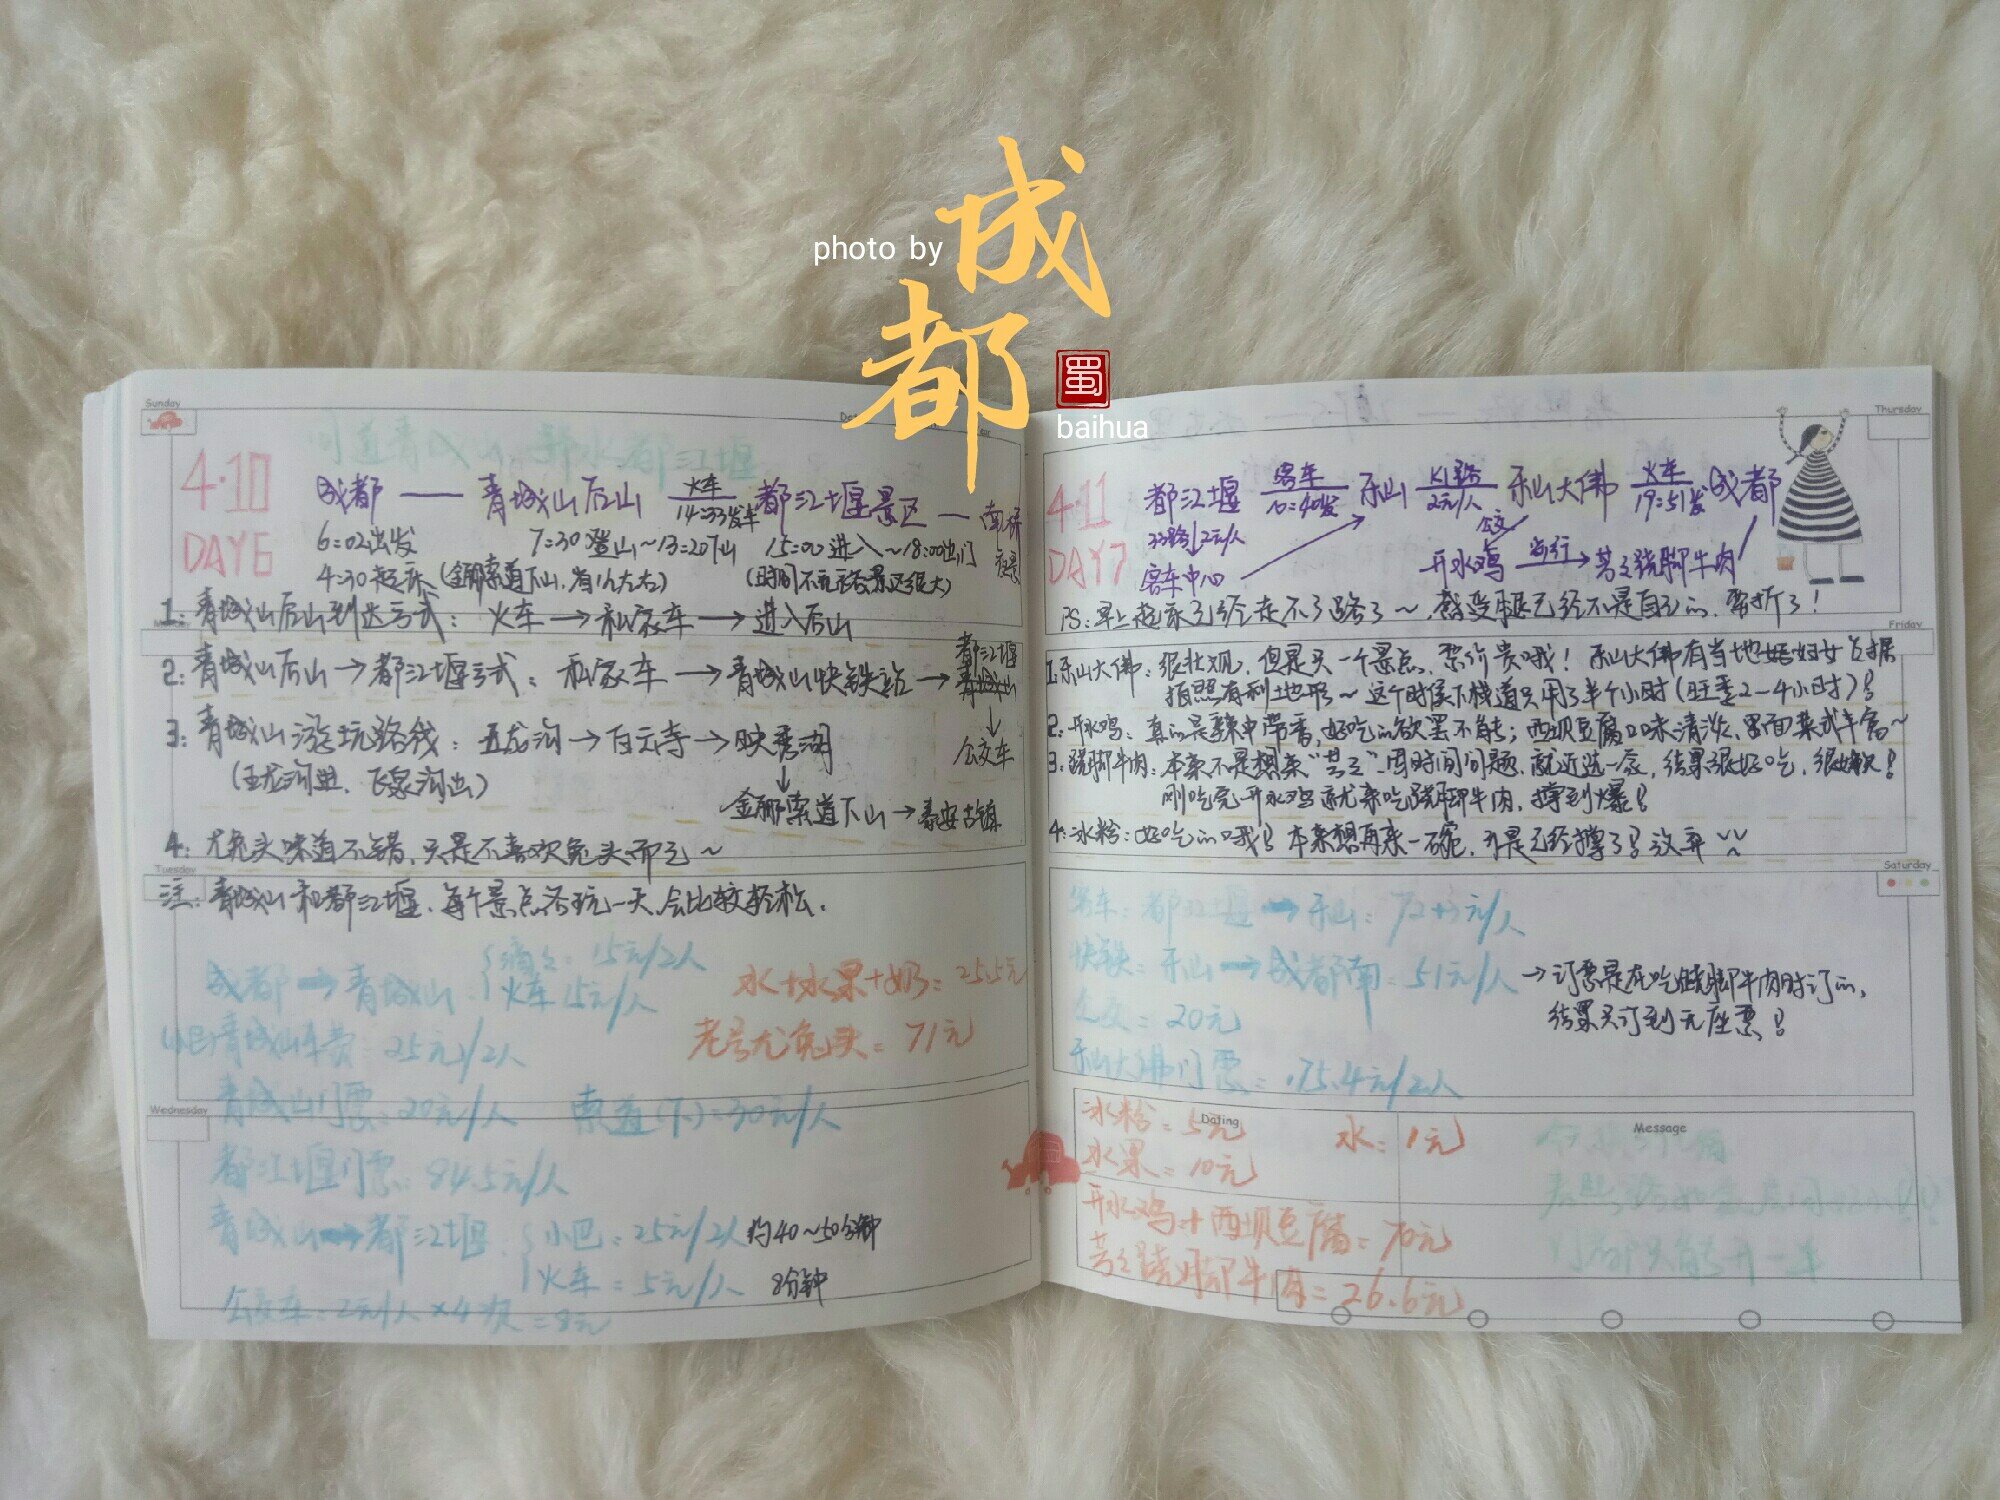 photo by
成都
蜀
baihua
Sunday
问道青城山 拜水都江堰
4·10
DAY6
成都 —— 青城山后山 火车 14:33发车 都江堰景区 — 南桥夜景
6:02出发 7:30登山~13:20下山 15:00进入~18:00出门
4:30起床(金骊索道下山,省1h左右) (时间不充裕景区很大)
1:青城山后山到达方式:火车→私家车→进入后山
2:青城山后山→都江堰方式:私家车→青城山快铁站→都江堰
青城山
↓
公交车
3:青城山游玩路线:五龙沟→白云寺→映秀湖
(五龙沟进、飞泉沟出) ↓
金骊索道下山→泰安古镇
4:尤兔头味道不错,只是不喜欢兔头而已~
Tuesday
注:青城山和都江堰,每个景点各玩一天,会比较轻松.
成都→青城山:{滴滴:15元/2人
火车15元/人
水+水果+奶=25.5元
青城山车费 25元/2人
老号尤兔头=71元
青城山门票:20元/人 索道(下)=30元/人
Wednesday
都江堰门票:84.5元/人
青城山→都江堰:{小巴:25元/2人 约40~50分钟
火车=5元/人 8分钟
公交车:2元/人×4次=8元
Thursday
4·11
DAY7
都江堰 客车 10:40发 乐山 K1路 2元/人 乐山大佛 火车 19:51发 成都
33路↓2元/人 公交
客车中心 开水鸡 步行→ 芸芝跷脚牛肉
PS:早上起床已经走不了路了~,感受腿已经不是自己的,要折了!
Friday
1:乐山大佛:很壮观,但是只一个景点,票价贵哦!乐山大佛有当地婚妇女占据
拍照有利地形~这个时候下栈道只用了半个小时(旺季2-4小时)!
2:开水鸡:真的是辣中带香,好吃的欲罢不能;西坝豆腐口味清淡,里面菜式丰富~
3:跷脚牛肉:本来不是想来"芸芝",因时间问题,就近选一家,结果很好吃,很嫩!
刚吃完开水鸡就来吃跷脚牛肉,撑到爆!
4:冰粉:好吃的哦!本来想再来一碗,可是已经撑了!放弃
Saturday
客车:都江堰→乐山:72+3元/人
快铁:乐山→成都南=51元/人→订票是在吃跷脚牛肉时订的,
结果只订到无座票!
公交=20元
乐山大佛门票=175.4元/2人
Dating
冰粉=5元 水:1元
Message
水果=10元
开水鸡+西坝豆腐=70元
芸芝跷脚牛肉=26.6元